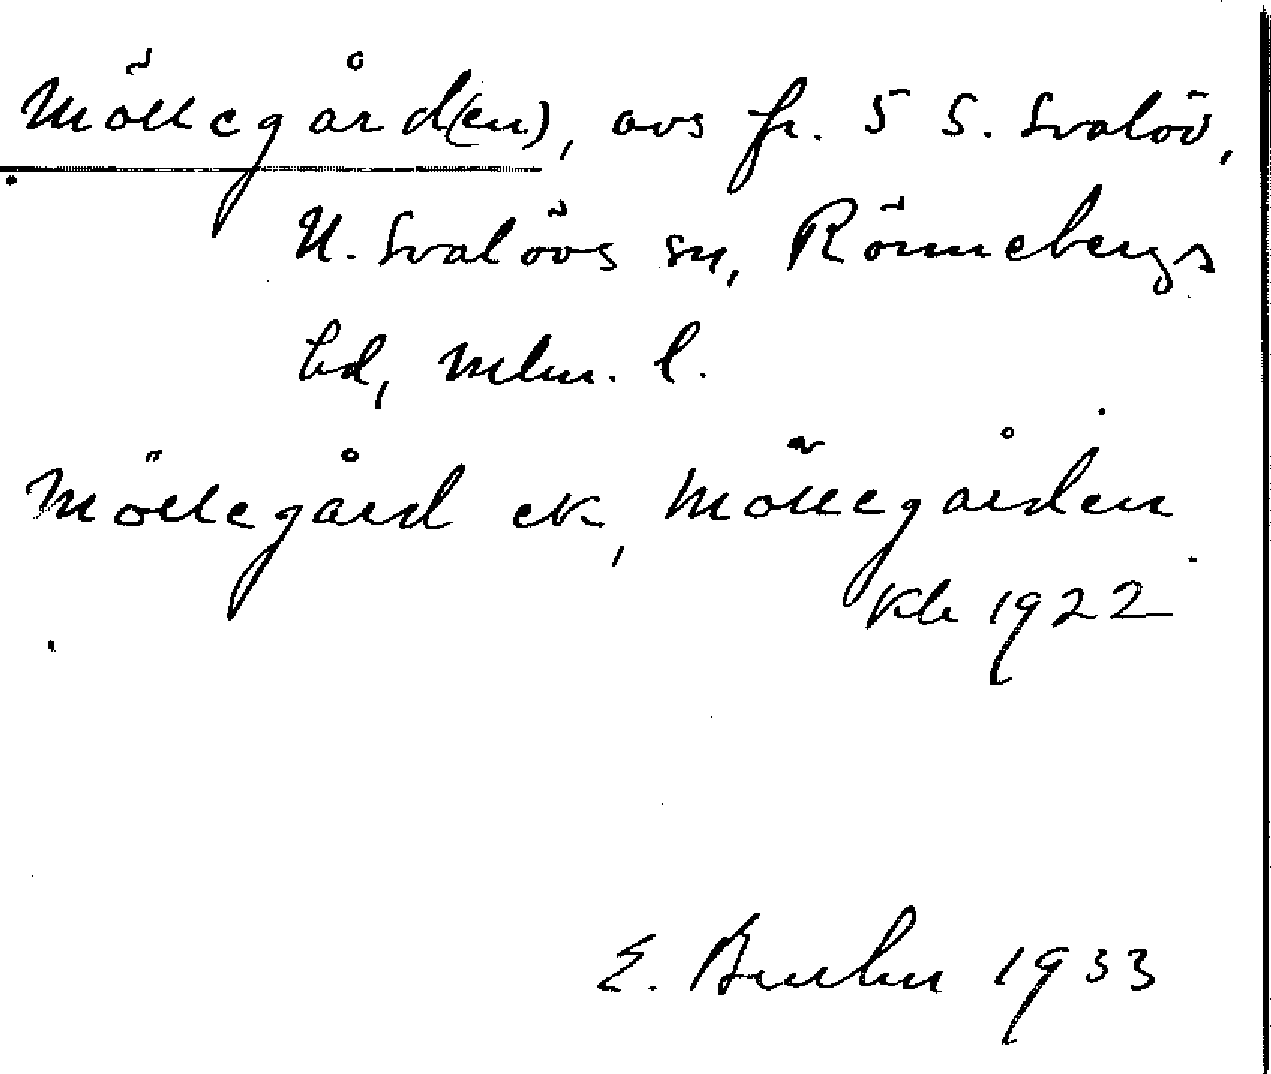 Möllegård(en), avs fr. 5 S. Svalöv,
N. Svalövs sn, Rönnebergs
hd, Mlm. l.
Möllegård ek, Möllegården
kb 1922
E. Bruhn 1933